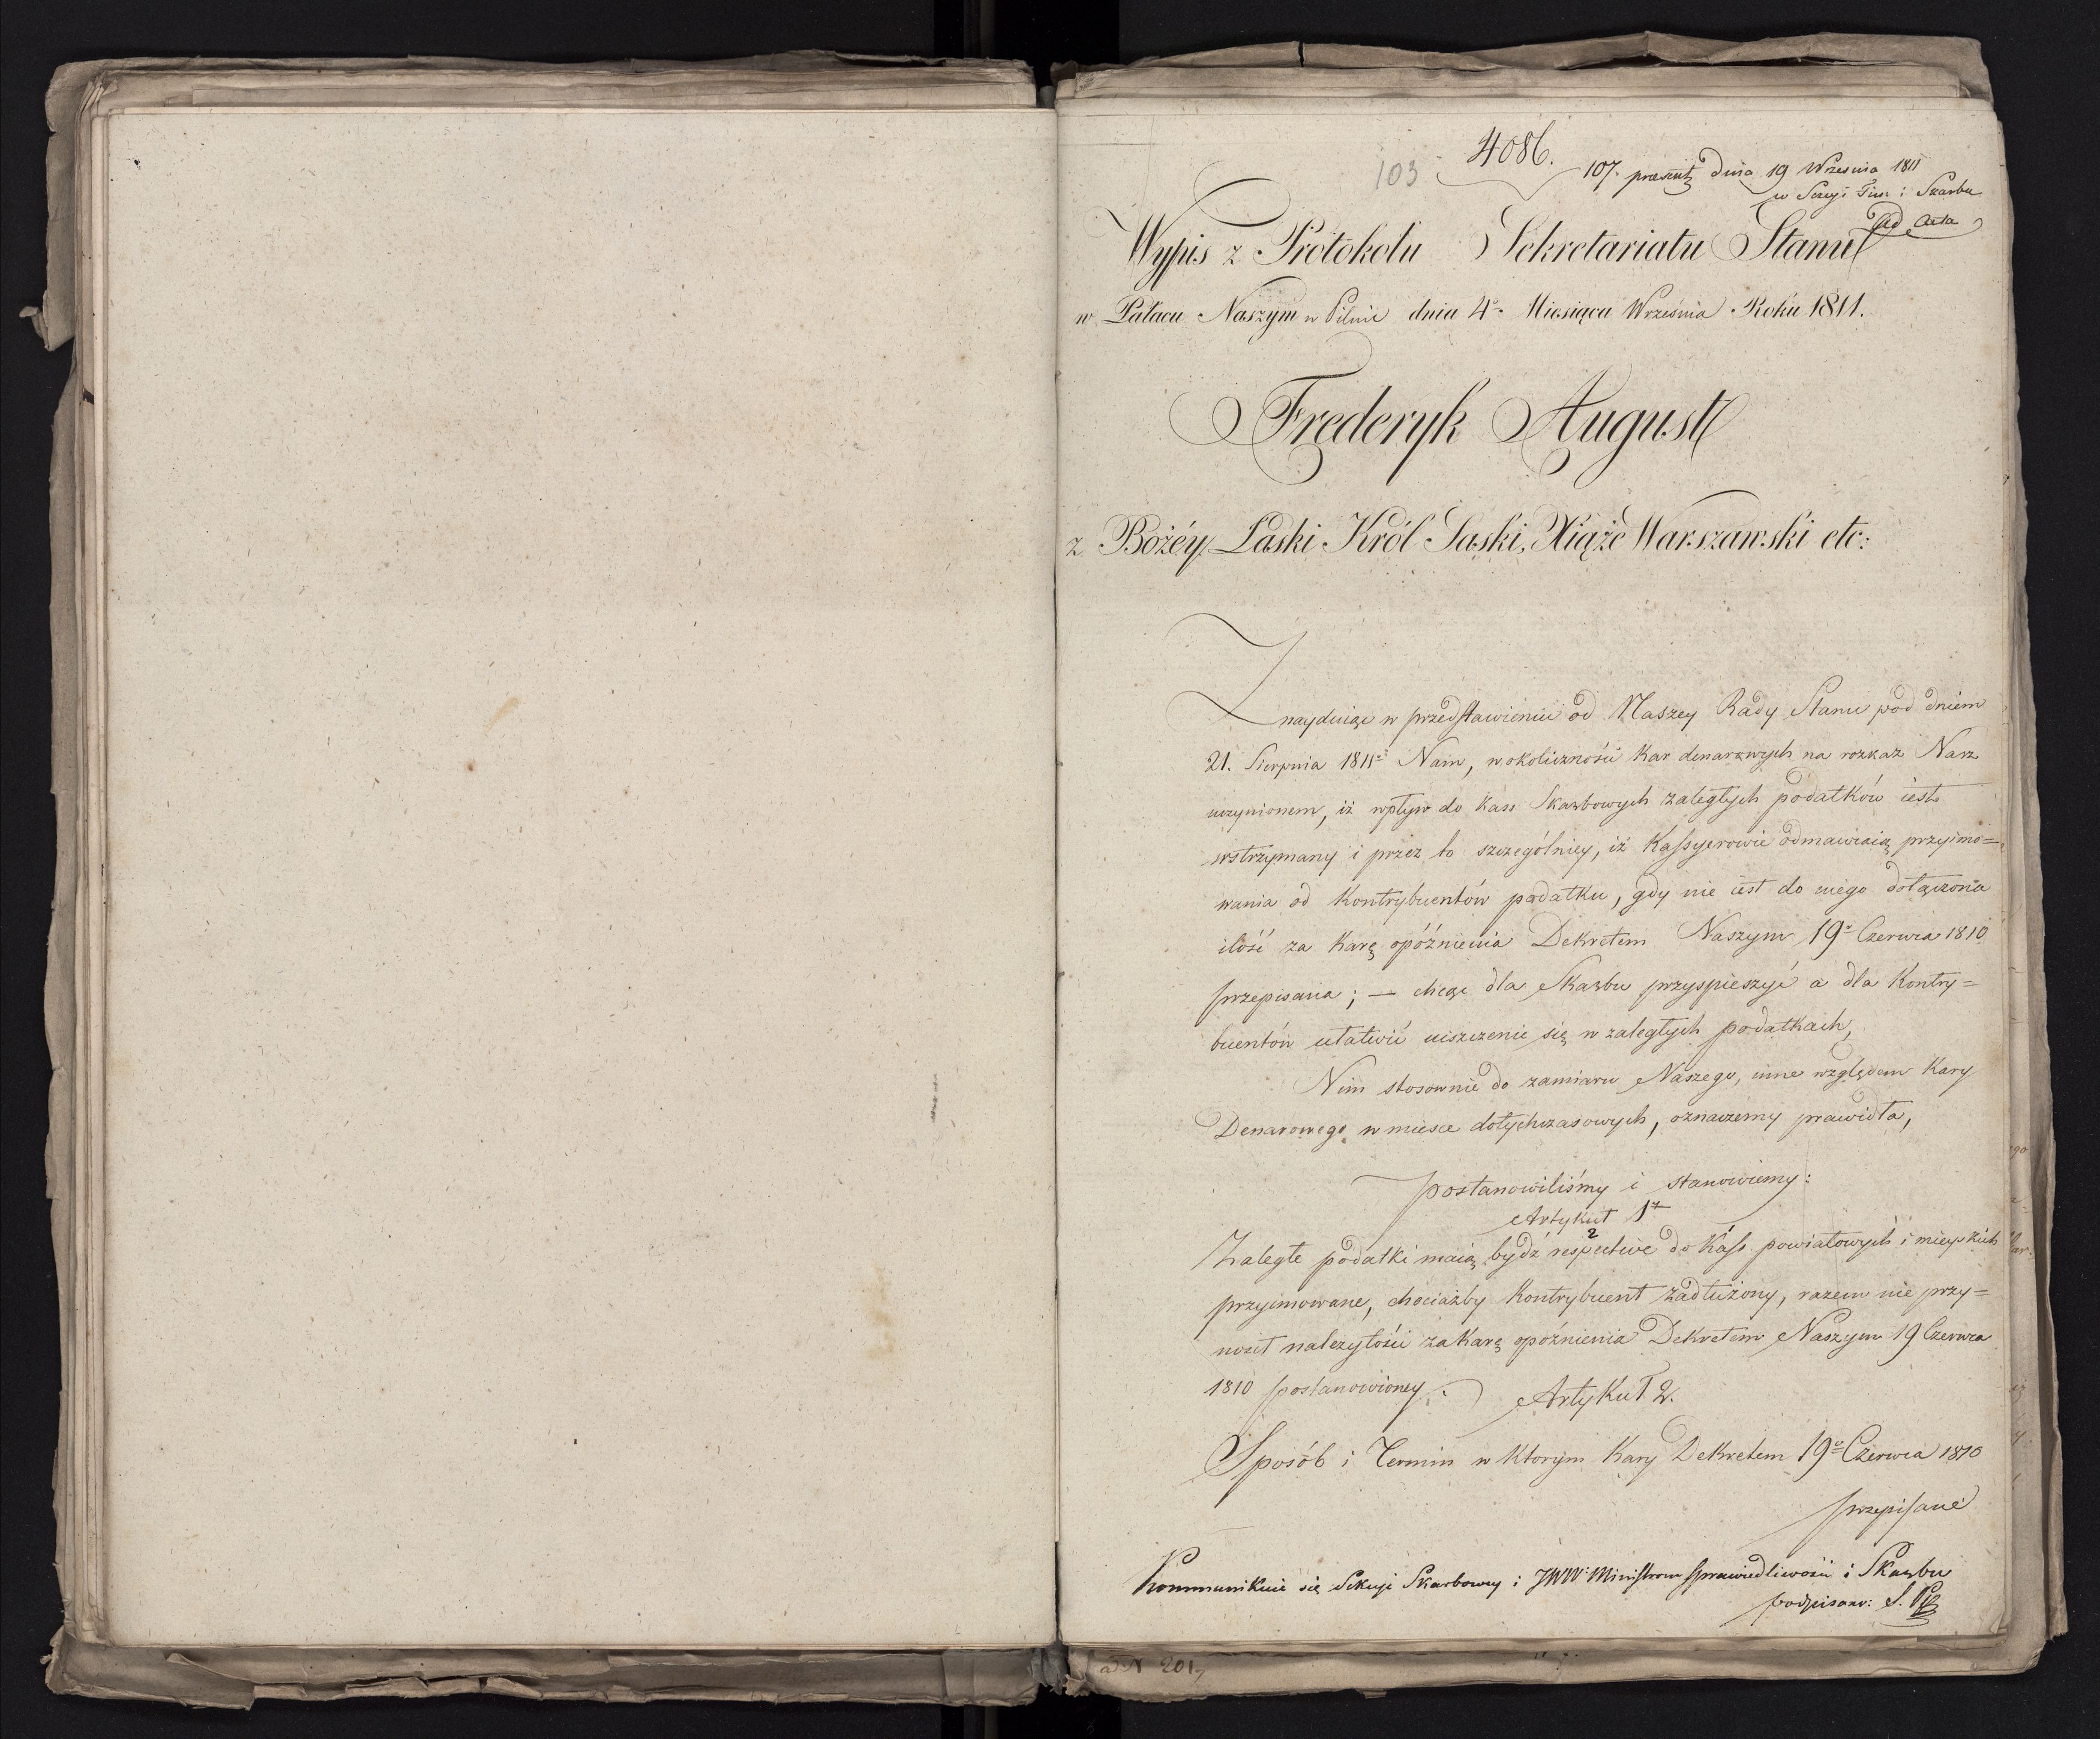 4086.
103
107. praesent dnia 19 Wrzesnia 1811
w Sekcyi Fin: i Skarbu
ad acta
Wypis z Protokołu Sekretariatu Stanu
w Pałacu Naszym w Pilnic dnia 4º Miesiąca Września Roku 1811.
Frederyk August
z Bożéy Łaski Król Saski, Xiąże Warszawski etc:
Znayduiąc w przedstawieniu od Naszey Rady Stanu pod dniem
21. Sierpnia 1811º Nam, w okoliczności Kar denarowych na rozkaz Nasz
uczynionem, iż wpływ do kass Skarbowych zaległych podatków iest
wstrzymany i przez to szczególniey, iż Kassyerowie odmawiaią przyimo=
wania od Kontrybuentów podatku, gdy nie iest do niego dołączona
ilość za Karę opóźnienia Dekretem Naszym 19º Czerwca 1810
przepisana; — chcąc dla Skarbu przyspieszyć a dla Kontry=
buentów ułatwić uiszczenie się w zaległych podatkach,
Nim stosownie do zamiaru Naszego, inne względem Kary
Denarowego w miesce dotychczasowych, oznaczemy prawidła,
postanowiliśmy i stanowiemy:
Artykuł 1º
Zaległe podatki maią bydź respective do Kass powiatowych i mieyskich
przyimowane, chociażby Kontrybuent zadłużony, razem nie przy=
nosił należytości za Karę opóźnienia Dekretem Naszym 19 Czerwca
1810 postanowioney.
Artykuł 2.
Sposób i Termin w Ktorym Kary Dekretem 19º Czerwca 1810
przepisane
Kommunikuie się Sekcyi Skarbowey i JWW Ministrom Sprawiedliwości i Skarbu
podpisano: S.
ad N 201